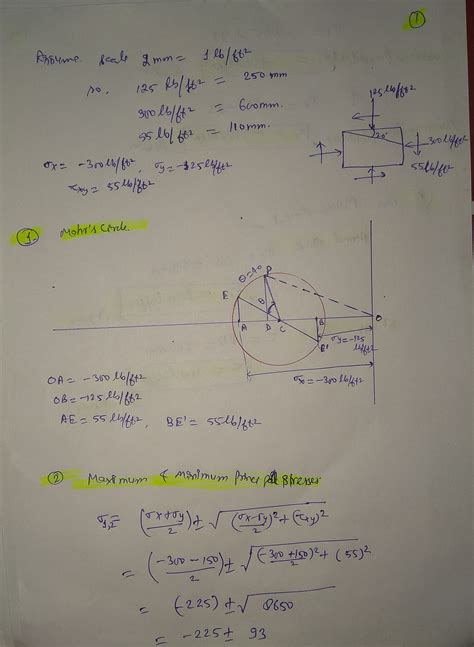 1
Assume scale 2mm = 1 lb/ft²
so, 125 lb/ft² = 250 mm
300 lb/ft² = 600mm.
55 lb/ft² = 110mm.
σx = -300 lb/ft², σy = -125 lb/ft²
τxy = 55 lb/ft²
125 lb/ft²
20°
300 lb/ft²
55 lb/ft²
1. Mohr's Circle
P
E
θ
A D C B O
E'
σy = -125
lb/ft²
σx = -300 lb/ft²
OA = -300 lb/ft²
OB = -125 lb/ft²
AE = 55 lb/ft², BE' = 55 lb/ft²
2 Maximum & Minimum Stresses
= (σx+σy/2) ± √(σx-σy/2)² + (τxy)²
= (-300-150/2) ± √(-300+150/2)² + (55)²
= (-225) ± √8650
= -225 ± 93